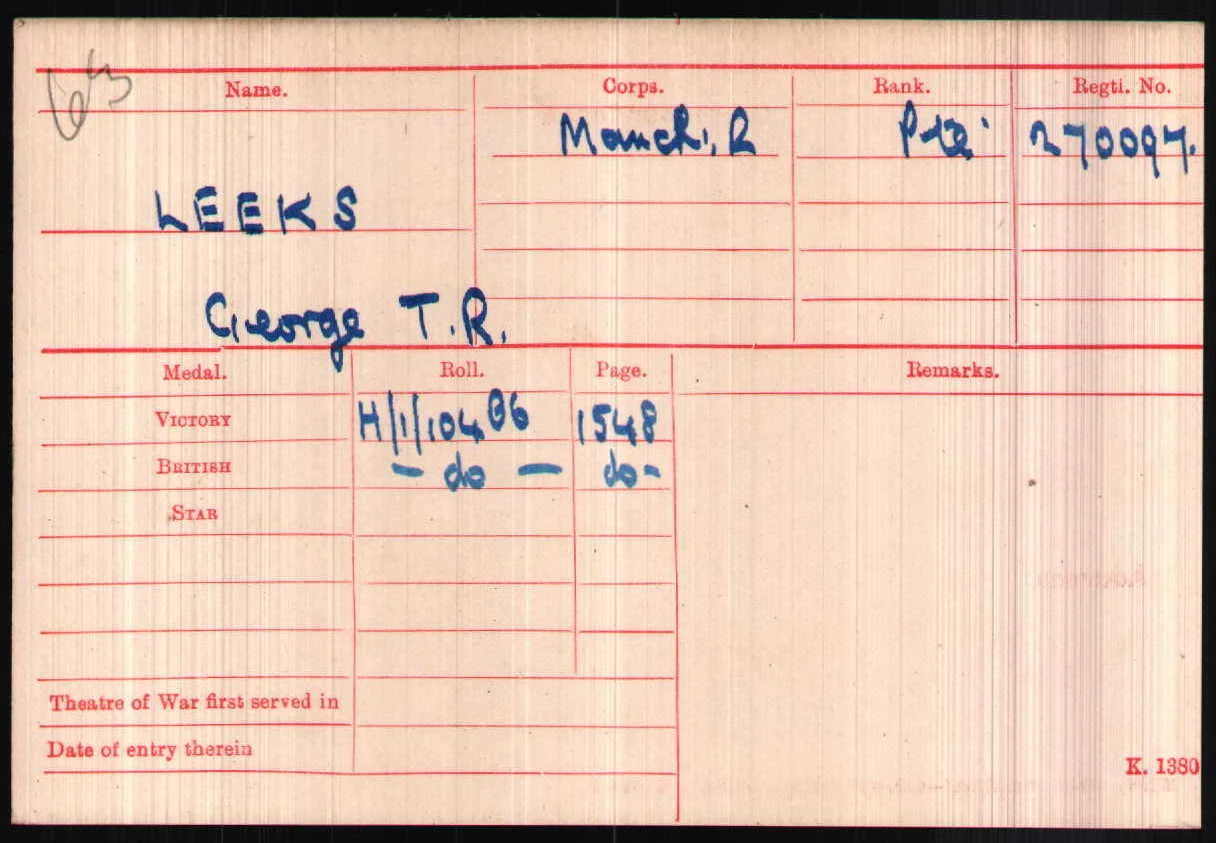 63
Name. Corps. Rank. Regtl. No.
Manch. R Pte. 270097.
LEEKS
George T.R.
Medal. Roll. Page. Remarks.
VICTORY H/1/104 B6 1548
BRITISH — do — do -
STAR
Theatre of War first served in
Date of entry therein
K. 1380